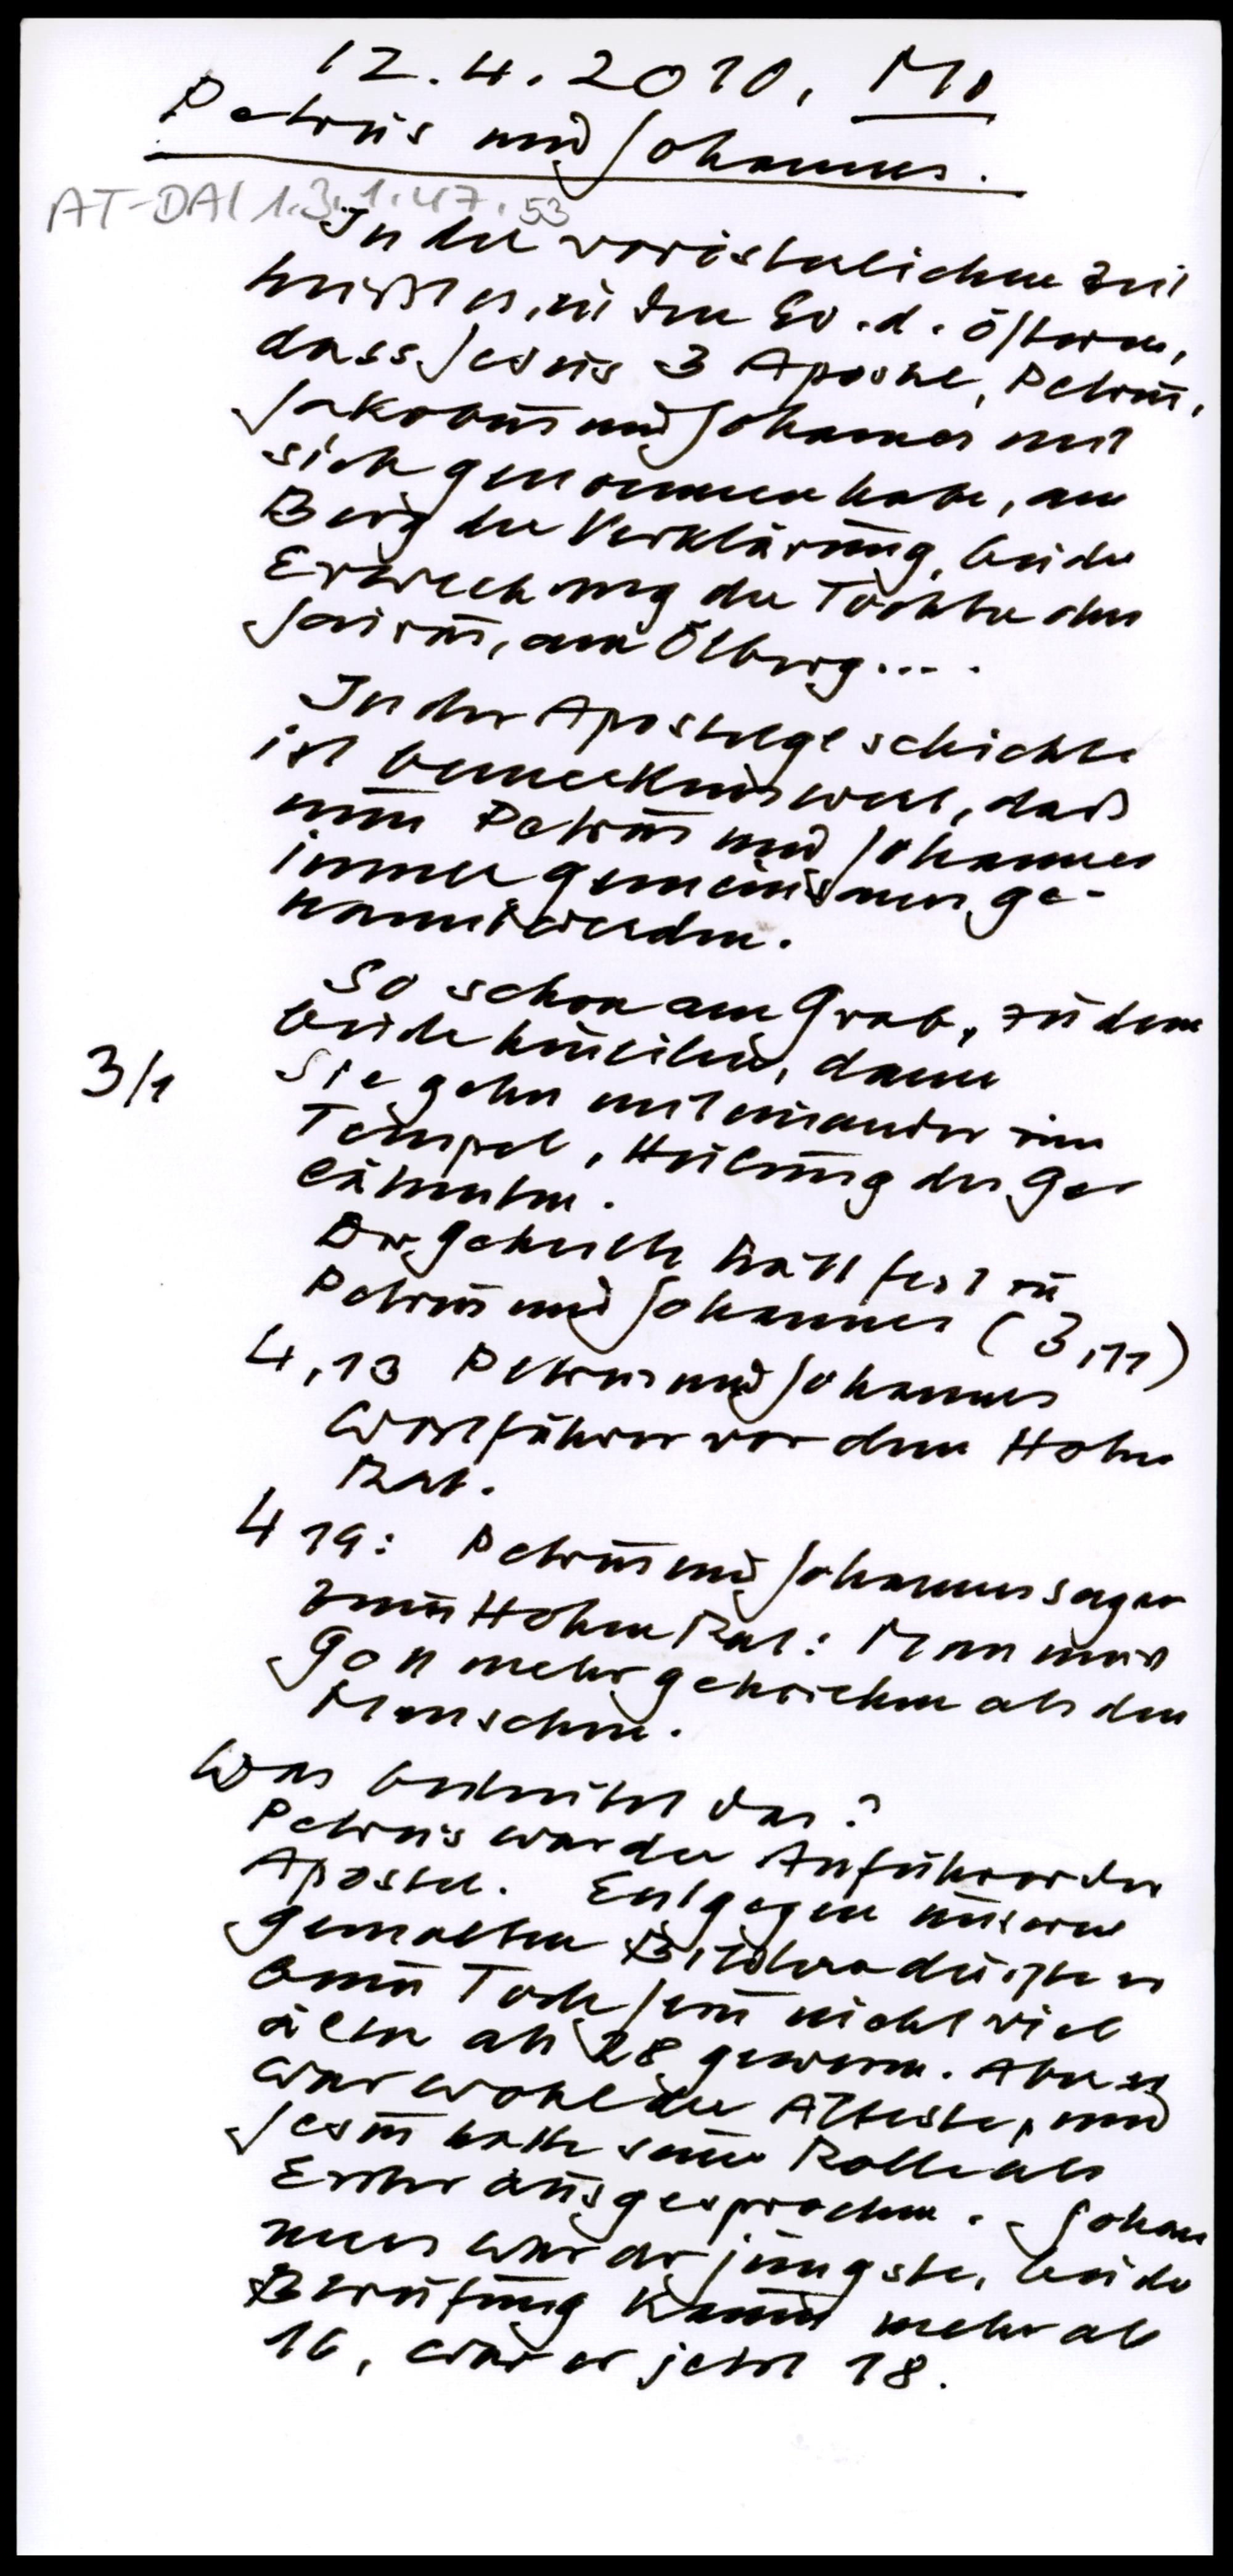 12.4.2010, Mo
Petrus und Johannes.
AT-DAI 1.3.1.47.53
In der vorösterlichen Zeit
heißt es, in den Ev. d. öfteren,
dass Jesus 3 Apostel, Petrus,
Jakobus und Johannes mit
sich genommen habe, am
Berg der Verklärung, bei der
Erweckung der Tochter des
Jairus, am Ölberg....
In der Apostelgeschichte
ist bemerkenswert, daß
nun Petrus und Johannes
immer gemeinsam ge-
nannt werden.
So schon am Grab, zu dem
beide hineilen, dann
3/1 Sie gehn miteinander im
Tempel, Heilung des Ge-
lähmten.
Der Geheilte hält fest zu
Petrus und Johannes (3,11)
4,13 Petrus und Johannes
Wortführer vor dem Hohen
Rat.
4 19: Petrus und Johannes sagen
zum Hohen Rat: Man muß
Gott mehr gehorchen als den
Menschen.
Was bedeutet das?
Petrus war der Anführer der
Apostel. Entgegen unseren
gemalten Bildern dürfte er
beim Tode Jesu nicht viel
älter als 28 gewesen. Aber er
war wohl der Älteste, und
Jesus hatte seine Rolle als
Erster ausgesprochen. Johan
nes war der jüngste, bei der
Berufung kaum mehr als
16, war er jetzt 18.